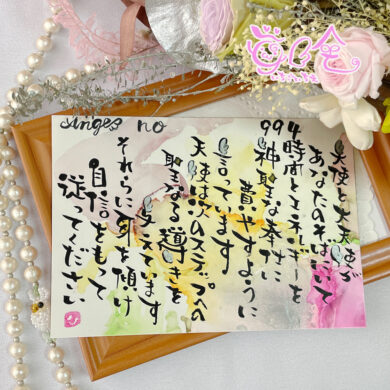 Singes no
天使と大天使が
あなたのそばにいて
4時間とエネルギーを
99神聖な奉仕に
費やすように
言っています
天使は次のステップへの
聖なる導きを
与えています
それらに耳を傾け
自信をもって
従ってください